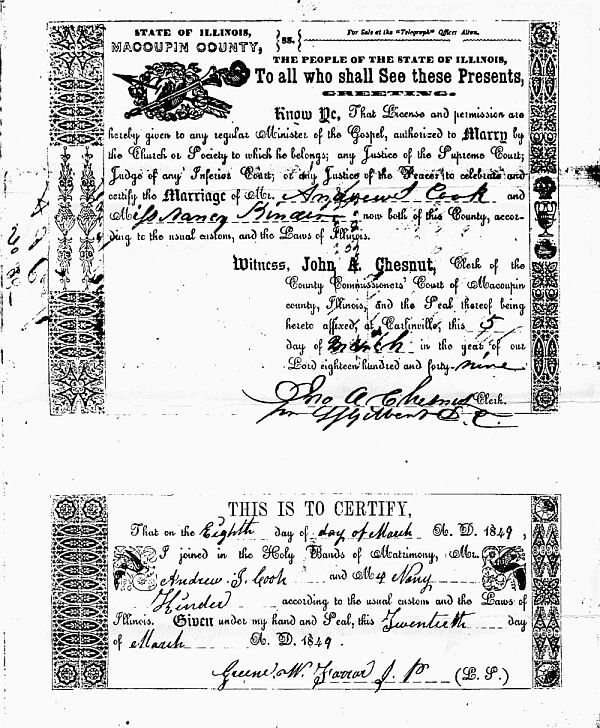 STATE OF ILLINOIS,
MACOUPIN COUNTY,
ss.
For Sale at the "Telegraph" Office Alton.
THE PEOPLE OF THE STATE OF ILLINOIS,
To all who shall See these Presents,
GREETING.
Know Ye, That License and permission are
hereby given to any regular Minister of the Gospel, authorized to Marry by
the Church or Society to which he belongs; any Justice of the Supreme Court;
Judge of any Inferior Court; or any Justice of the Peace, to celebrate and
certify the Marriage of Mr. Andrew J Cook and
Miss Nancy now both of this County, accor-
ding to the usual custom, and the Laws of Illinois.
Witness, John A. Chesnut, Clerk of the
County Commissioners' Court of Macoupin
county, Illinois, and the Seal thereof being
hereto affixed, at Carlinville, this 5
day of March in the year of our
Lord eighteen hundred and forty-nine
Jno A Chesnut Clerk.
THIS IS TO CERTIFY,
That on the Eighth day of day of March A. D. 1849,
I joined in the Holy Bands of Matrimony, Mr.
Andrew J. Cook and M
Kinder according to the usual custom and the Laws of
Illinois. Given under my hand and Seal, this Twentieth day
of March A. D. 1849.
Greene W. Farrar J. P. (L. S.)